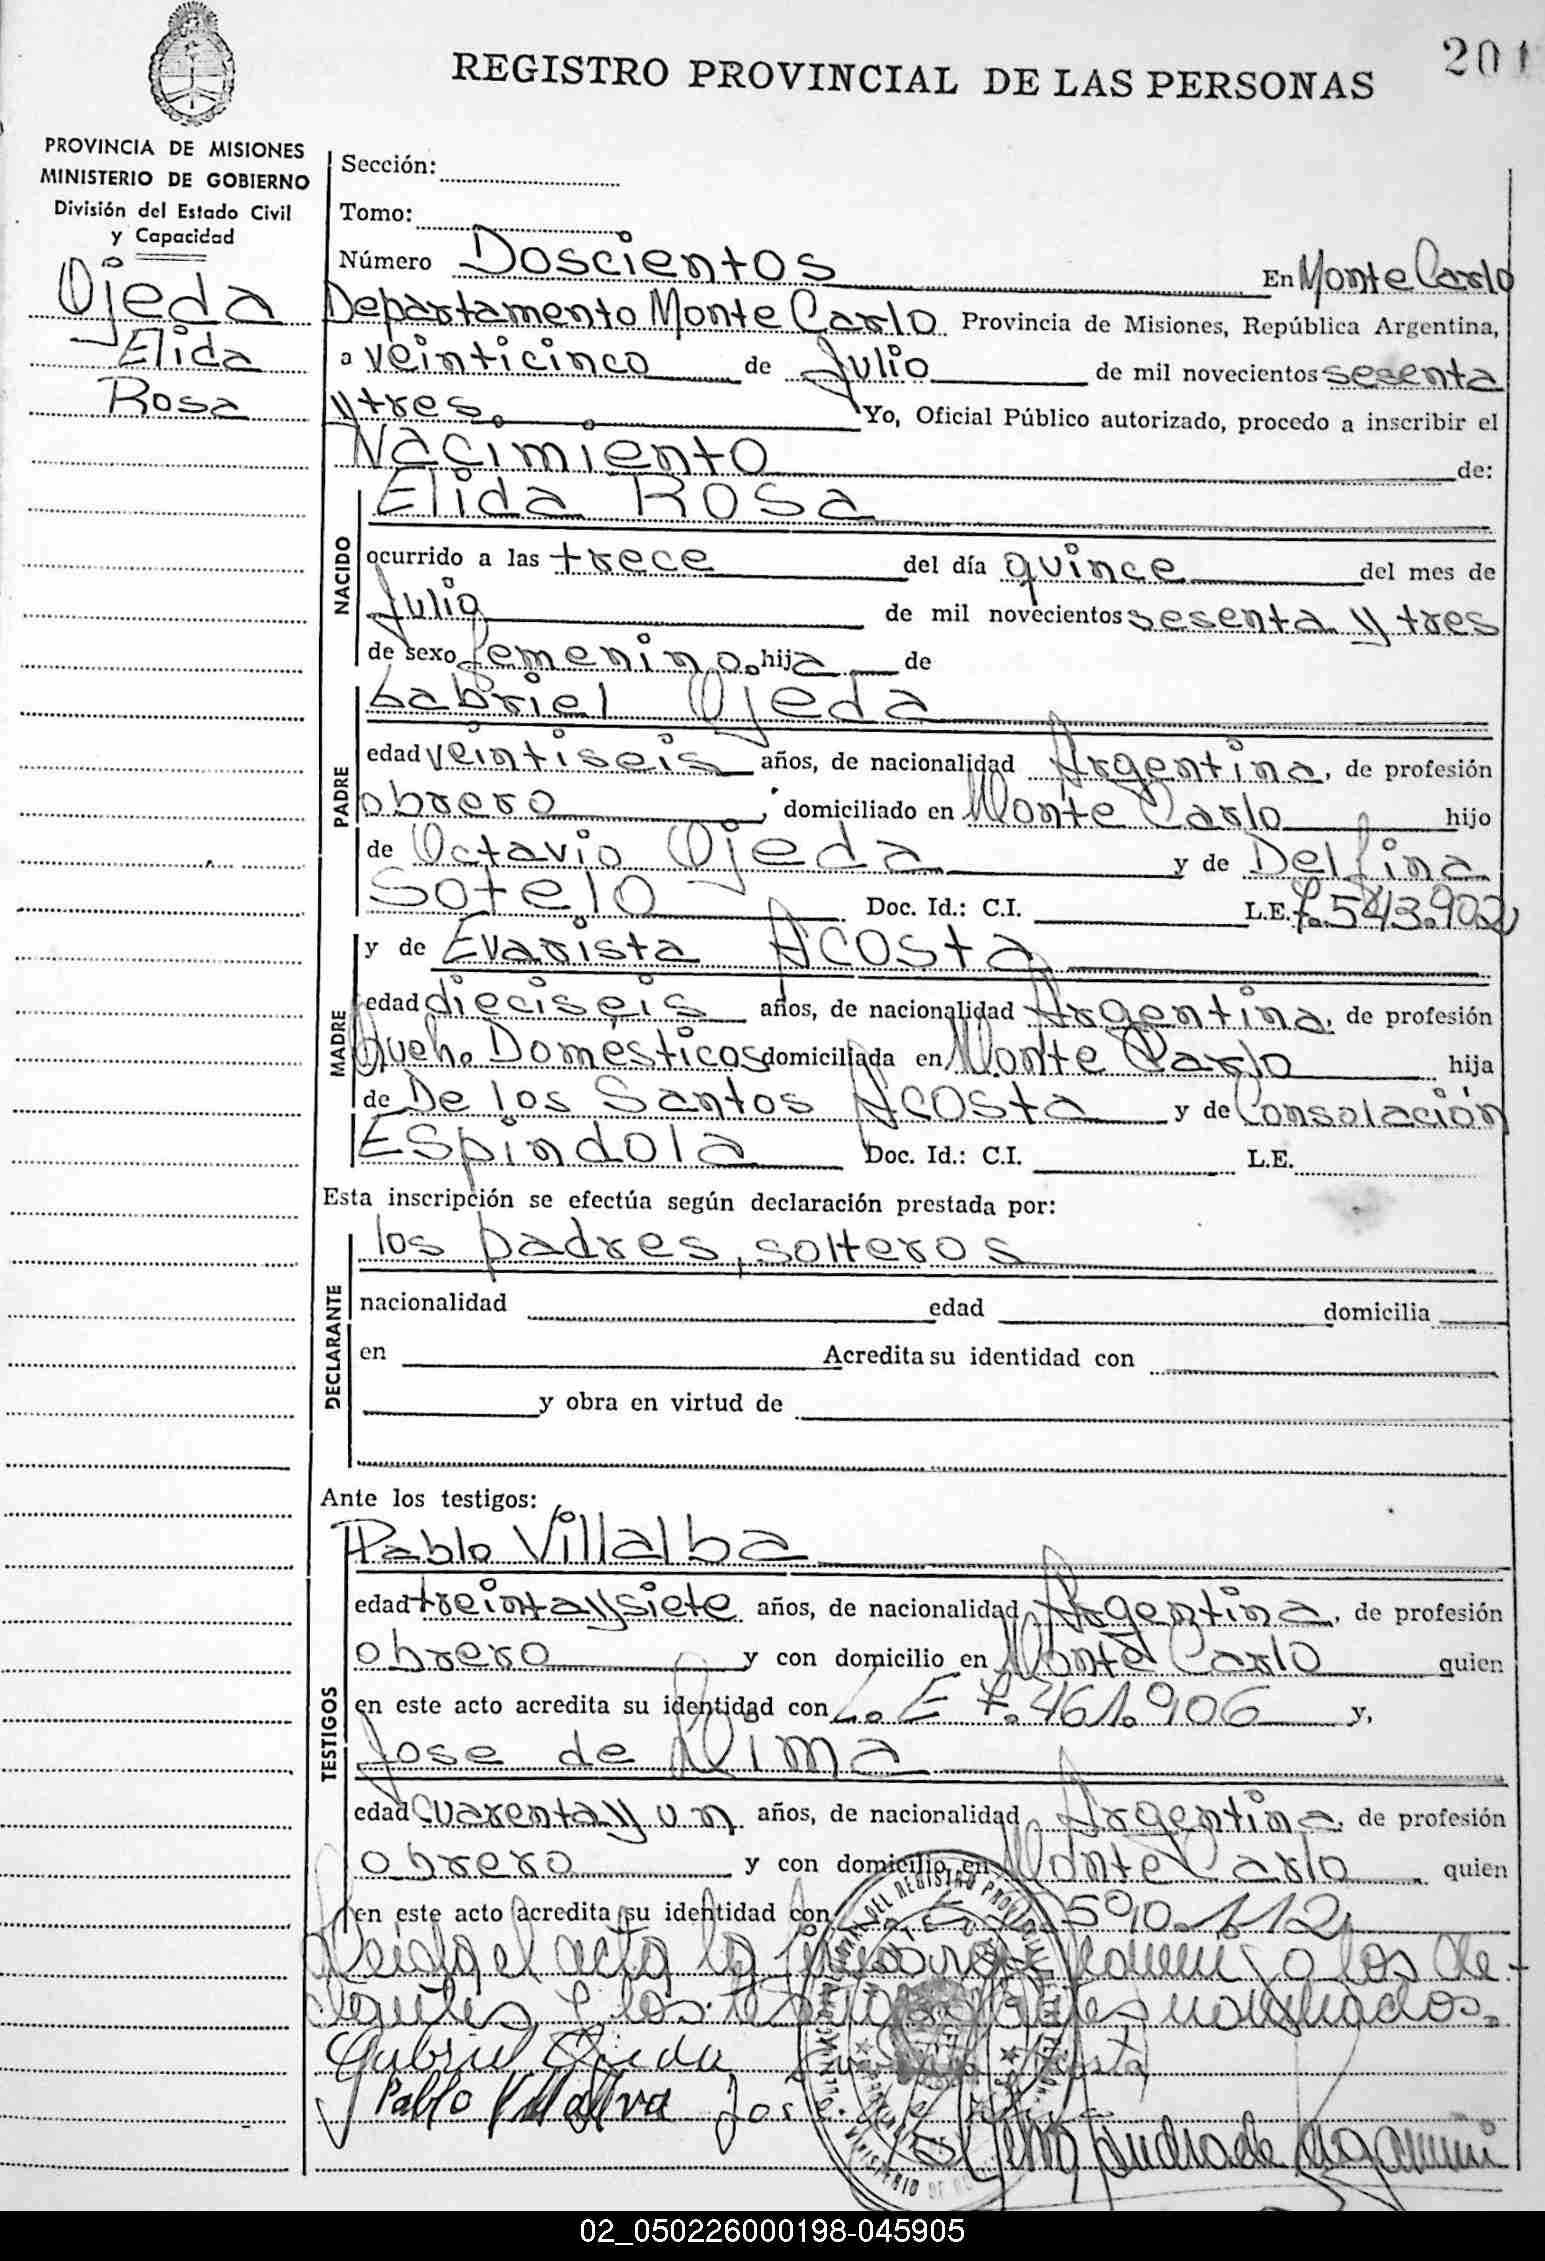 201
REGISTRO PROVINCIAL DE LAS PERSONAS
PROVINCIA DE MISIONES
MINISTERIO DE GOBIERNO
División del Estado Civil
y Capacidad
Ojeda
Elida
Rosa
Sección:
Tomo:
Número Doscientos En Monte Carlo
Departamento Monte Carlo Provincia de Misiones, República Argentina,
a veinticinco de Julio de mil novecientos sesenta
y tres. Yo, Oficial Público autorizado, procedo a inscribir el
Nacimiento de:
NACIDO
Elida Rosa
ocurrido a las trece del día quince del mes de
Julio de mil novecientos sesenta y tres
de sexo femenino. hija de
PADRE
Gabriel Ojeda
edad veintiseis años, de nacionalidad Argentina, de profesión
obrero, domiciliado en Monte Carlo hijo
de Octavio Ojeda y de Delfina
Sotelo Doc. Id.: C.I. L.E. 7.543.902
MADRE
y de Evarista Acosta
edad dieciseis años, de nacionalidad Argentina, de profesión
Queh. Domésticos domiciliada en Monte Carlo hija
de De los Santos Acosta y de Consolación
Espindola Doc. Id.: C.I. L.E.
Esta inscripción se efectúa según declaración prestada por:
DECLARANTE
los padres, solteros
nacionalidad edad domicilia
en Acredita su identidad con
y obra en virtud de
Ante los testigos:
TESTIGOS
Pablo Villalba
edad treinta y siete años, de nacionalidad Argentina, de profesión
obrero y con domicilio en Monte Carlo quien
en este acto acredita su identidad con L. E 7.461.906 y,
Jose de Nima
edad cuarenta y un años, de nacionalidad Argentina, de profesión
obrero y con domicilio en Monte Carlo quien
en este acto acredita su identidad con 590.112
Leida el acta la conmigo los de-
y los testigos nombrados.
Gabriel Ojeda Acosta
Pablo Villalva Jose de
02_050226000198-045905